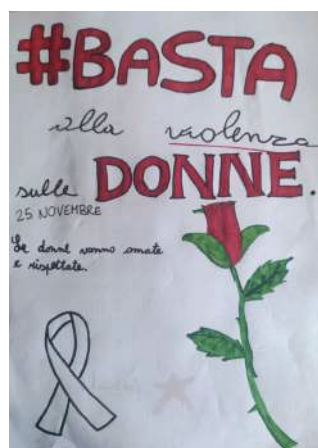 #BASTA
alla violenza
sulle DONNE.
25 NOVEMBRE
Le donne vanno amate
e rispettate.